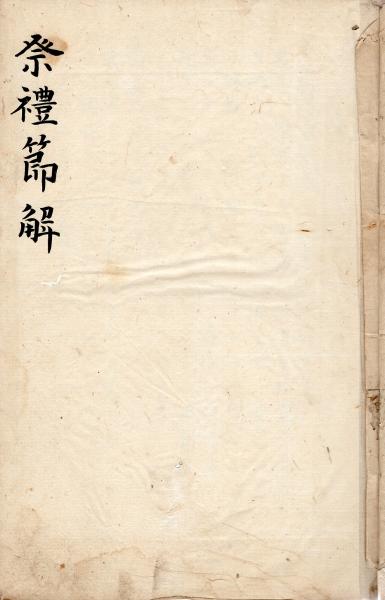 祭禮節解